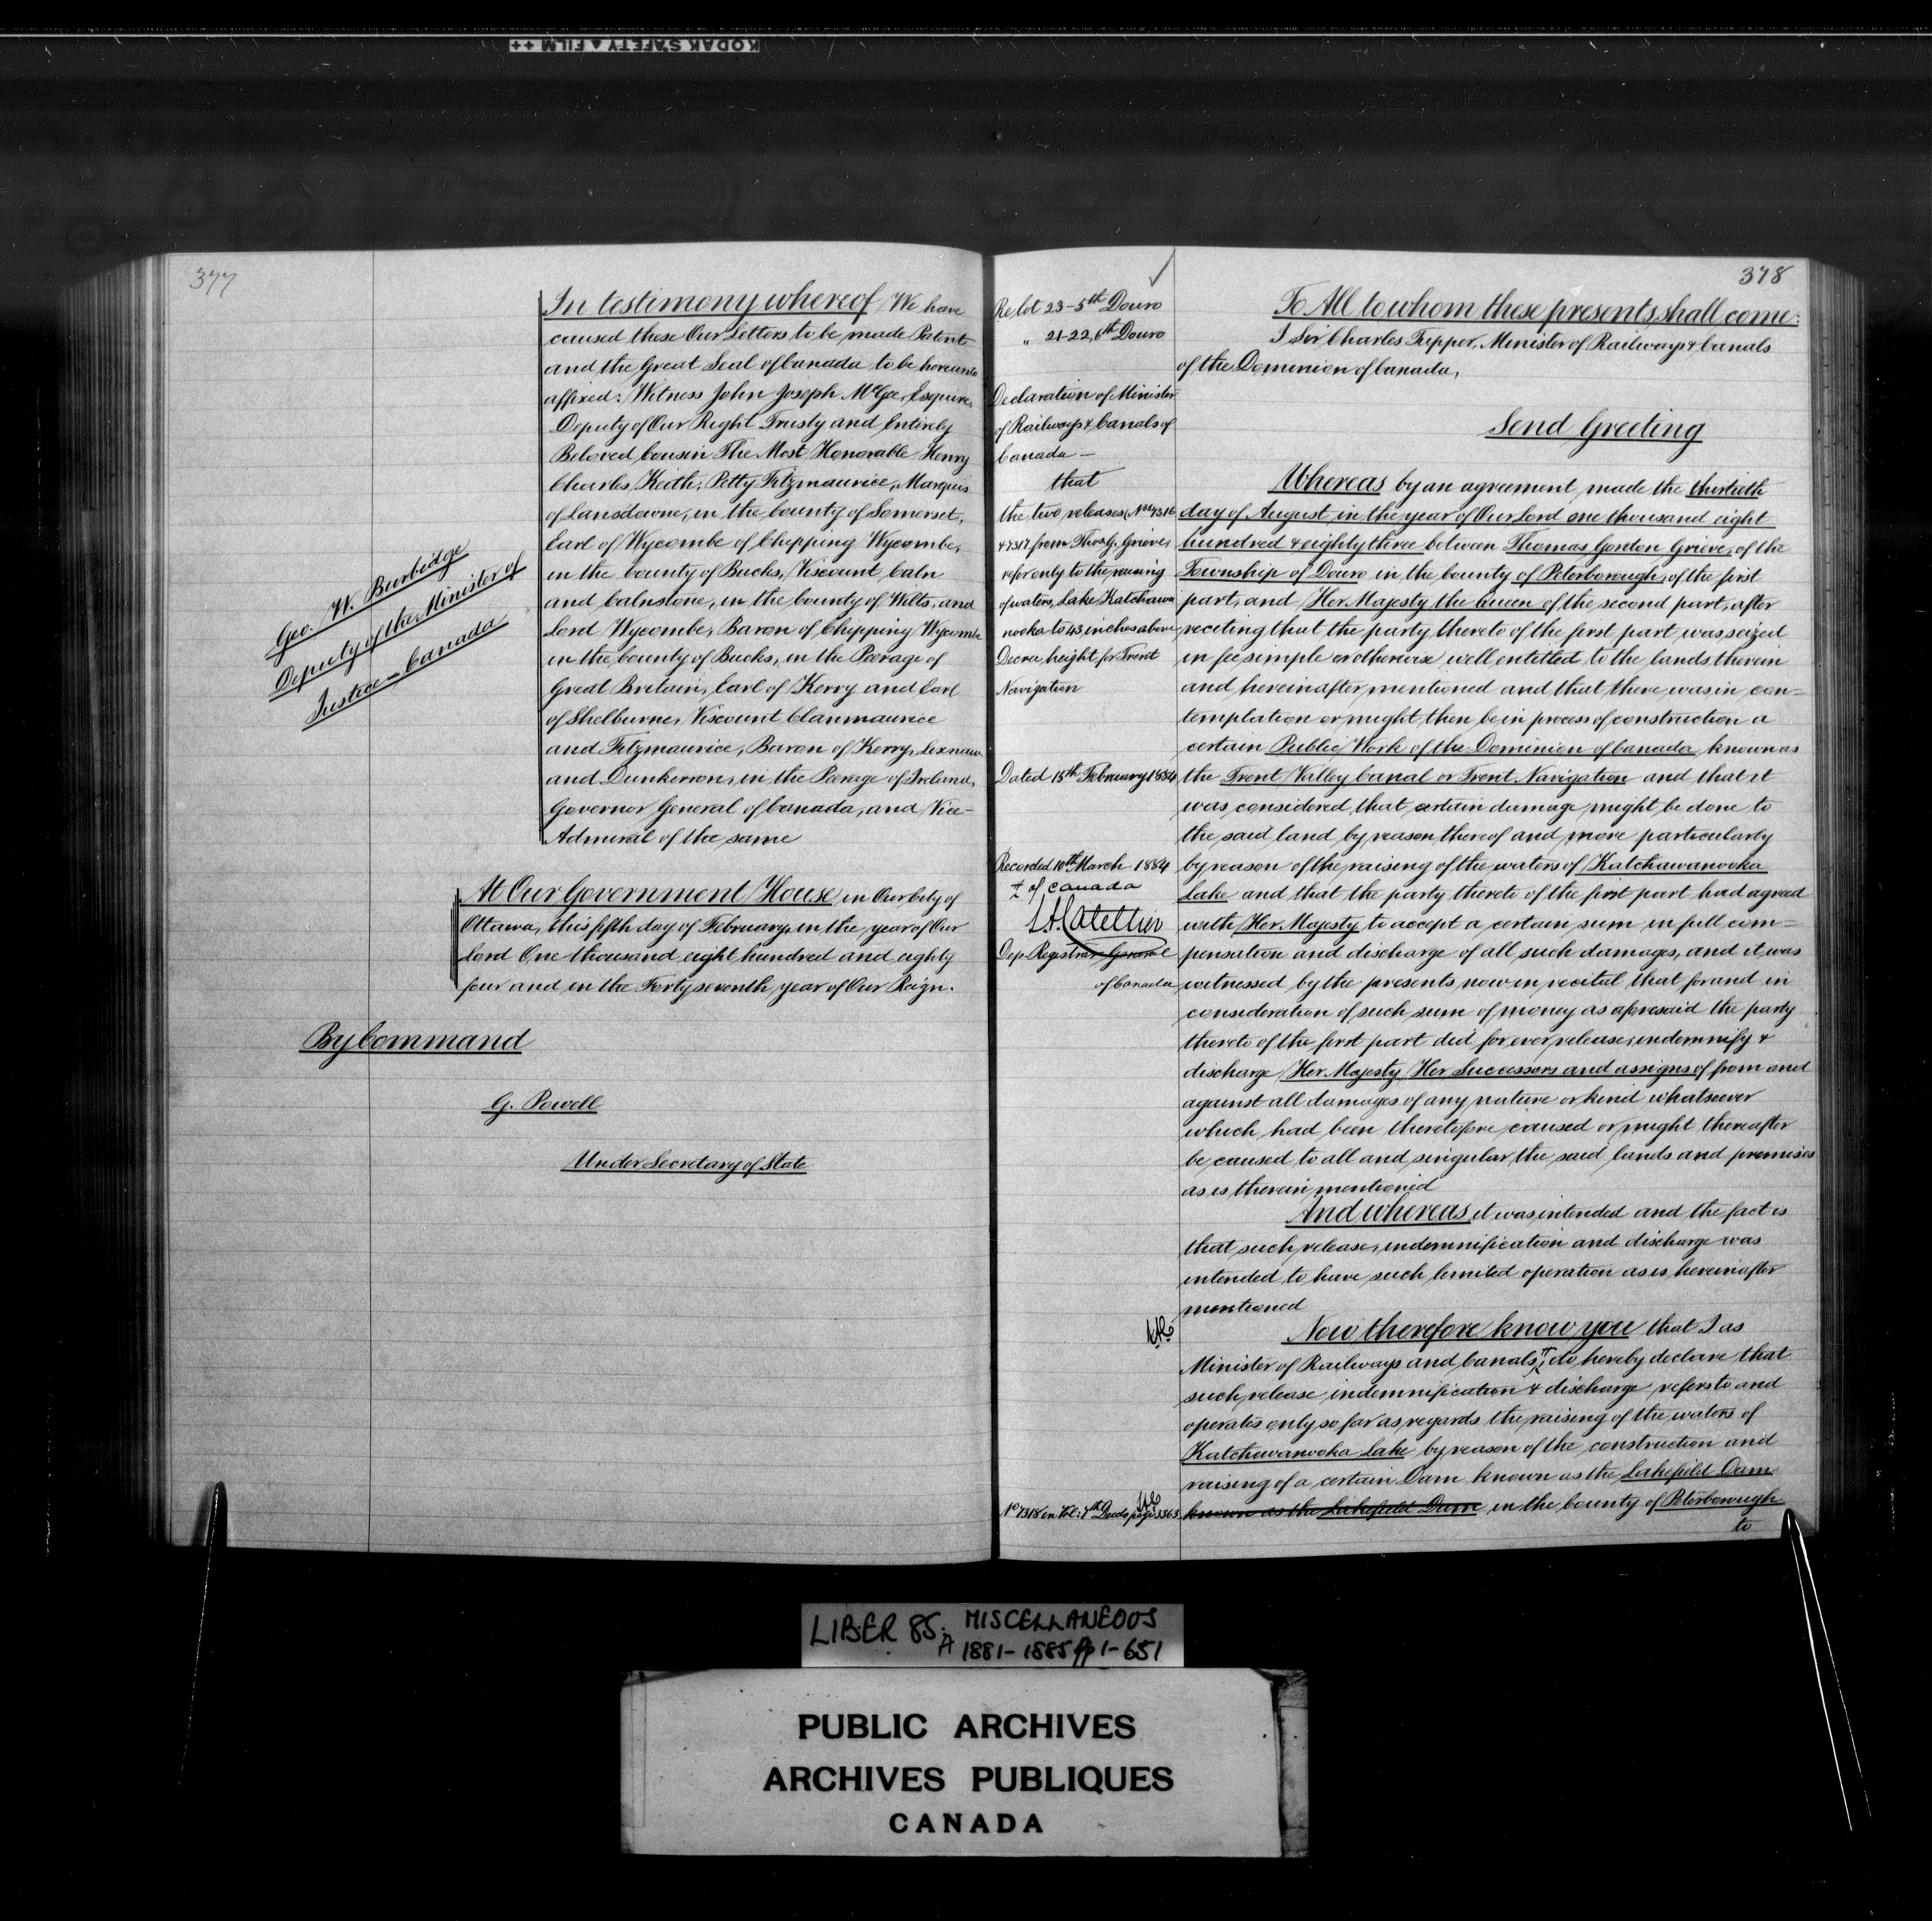 KODAK SAFETY FILM ++
377
In testimony whereof We have
caused these Our Letters to be made Patent
and the Great Seal of Canada to be hereunto
affixed: Witness John Joseph McGee, Esquire,
Deputy of Our Right Trusty and Entirely
Beloved Cousin The Most Honorable Henry
Charles Keith, Petty Fitzmaurice, Marquis
of Lansdowne, in the County of Somerset,
Earl of Wycombe of Chipping Wycombe,
in the County of Bucks, Viscount Caln
and Calnstone, in the County of Wilts, and
Lord Wycombe, Baron of Chipping Wycombe
in the County of Bucks, in the Peerage of
Great Britain, Earl of Kerry and Earl
of Shelburne, Viscount Clanmaurice
and Fitzmaurice, Baron of Kerry, Lixnaw
and Dunkerron, in the Peerage of Ireland,
Governor General of Canada, and Vice-
Admiral of the same
Geo. W. Burbidge
Deputy of the Minister of
Justice - Canada
At Our Government House, in Our City of
Ottawa, this fifth day of February, in the year of Our
Lord One thousand eight hundred and eighty
four and in the Forty seventh year of Our Reign.
By Command
G. Powell
Under Secretary of State
378
Re lot 23-5th Douro
" 21-22, 6th Douro
Declaration of Minister
of Railways & Canals of
Canada -
that
the two releases (Nos 7316
& 7317 from Thos. G. Grieve,
refer only to the raising
of waters, Lake Katchawa
nooka to 43 inches above
Decree height for Trent
Navigation
Dated 15th February 1884
Recorded 10th March 1884
+ of Canada
L.A. Catellier
Dep. Registrar General
of Canada
To All to whom these presents shall come:
I Sir Charles Tupper, Minister of Railways & Canals
of the Dominion of Canada,
Send Greeting
Whereas by an agreement made the thirtieth
day of August in the year of Our Lord one thousand eight
hundred & eighty three between Thomas Gordon Grieve, of the
Township of Douro in the County of Peterborough, of the first
part, and Her Majesty the Queen of the second part, after
reciting that the party thereto of the first part was seized
in fee simple or otherwise well entitled to the lands therein
and hereinafter mentioned and that there was in con=
templation or might then be in process of construction a
certain Public Work of the Dominion of Canada, known as
the Trent Valley Canal or Trent Navigation and that it
was considered that certain damage might be done to
the said land by reason thereof and more particularly
by reason of the raising of the waters of Katchawanooka
Lake and that the party thereto of the first part had agreed
with Her Majesty to accept a certain sum in full com=
pensation and discharge of all such damages, and it was
witnessed by the presents now in recital that for and in
consideration of such sum of money as aforesaid the party
thereto of the first part did for ever release, indemnify &
discharge Her Majesty Her Successors and assigns of from and
against all damages of any nature or kind whatsoever
which had been theretofore caused or might thereafter
be caused to all and singular the said lands and premises
as is therein mentioned
And whereas it was intended and the fact is
that such release, indemnification and discharge was
intended to have such limited operation as is hereinafter
mentioned
Now therefore know you that I as
Minister of Railways and Canals, + do hereby declare that
such release indemnification & discharge refers to and
operates only so far as regards the raising of the waters of
Katchawanooka Lake by reason of the construction and
raising of a certain Dam known as the Lakefield Dam
known as the Lakefield Dam in the County of Peterborough
to
No 7318 in Vol: 7th Deeds page 3363
LIBER 85. MISCELLANEOUS
A 1881-1885 pp 1-651
PUBLIC ARCHIVES
ARCHIVES PUBLIQUES
CANADA